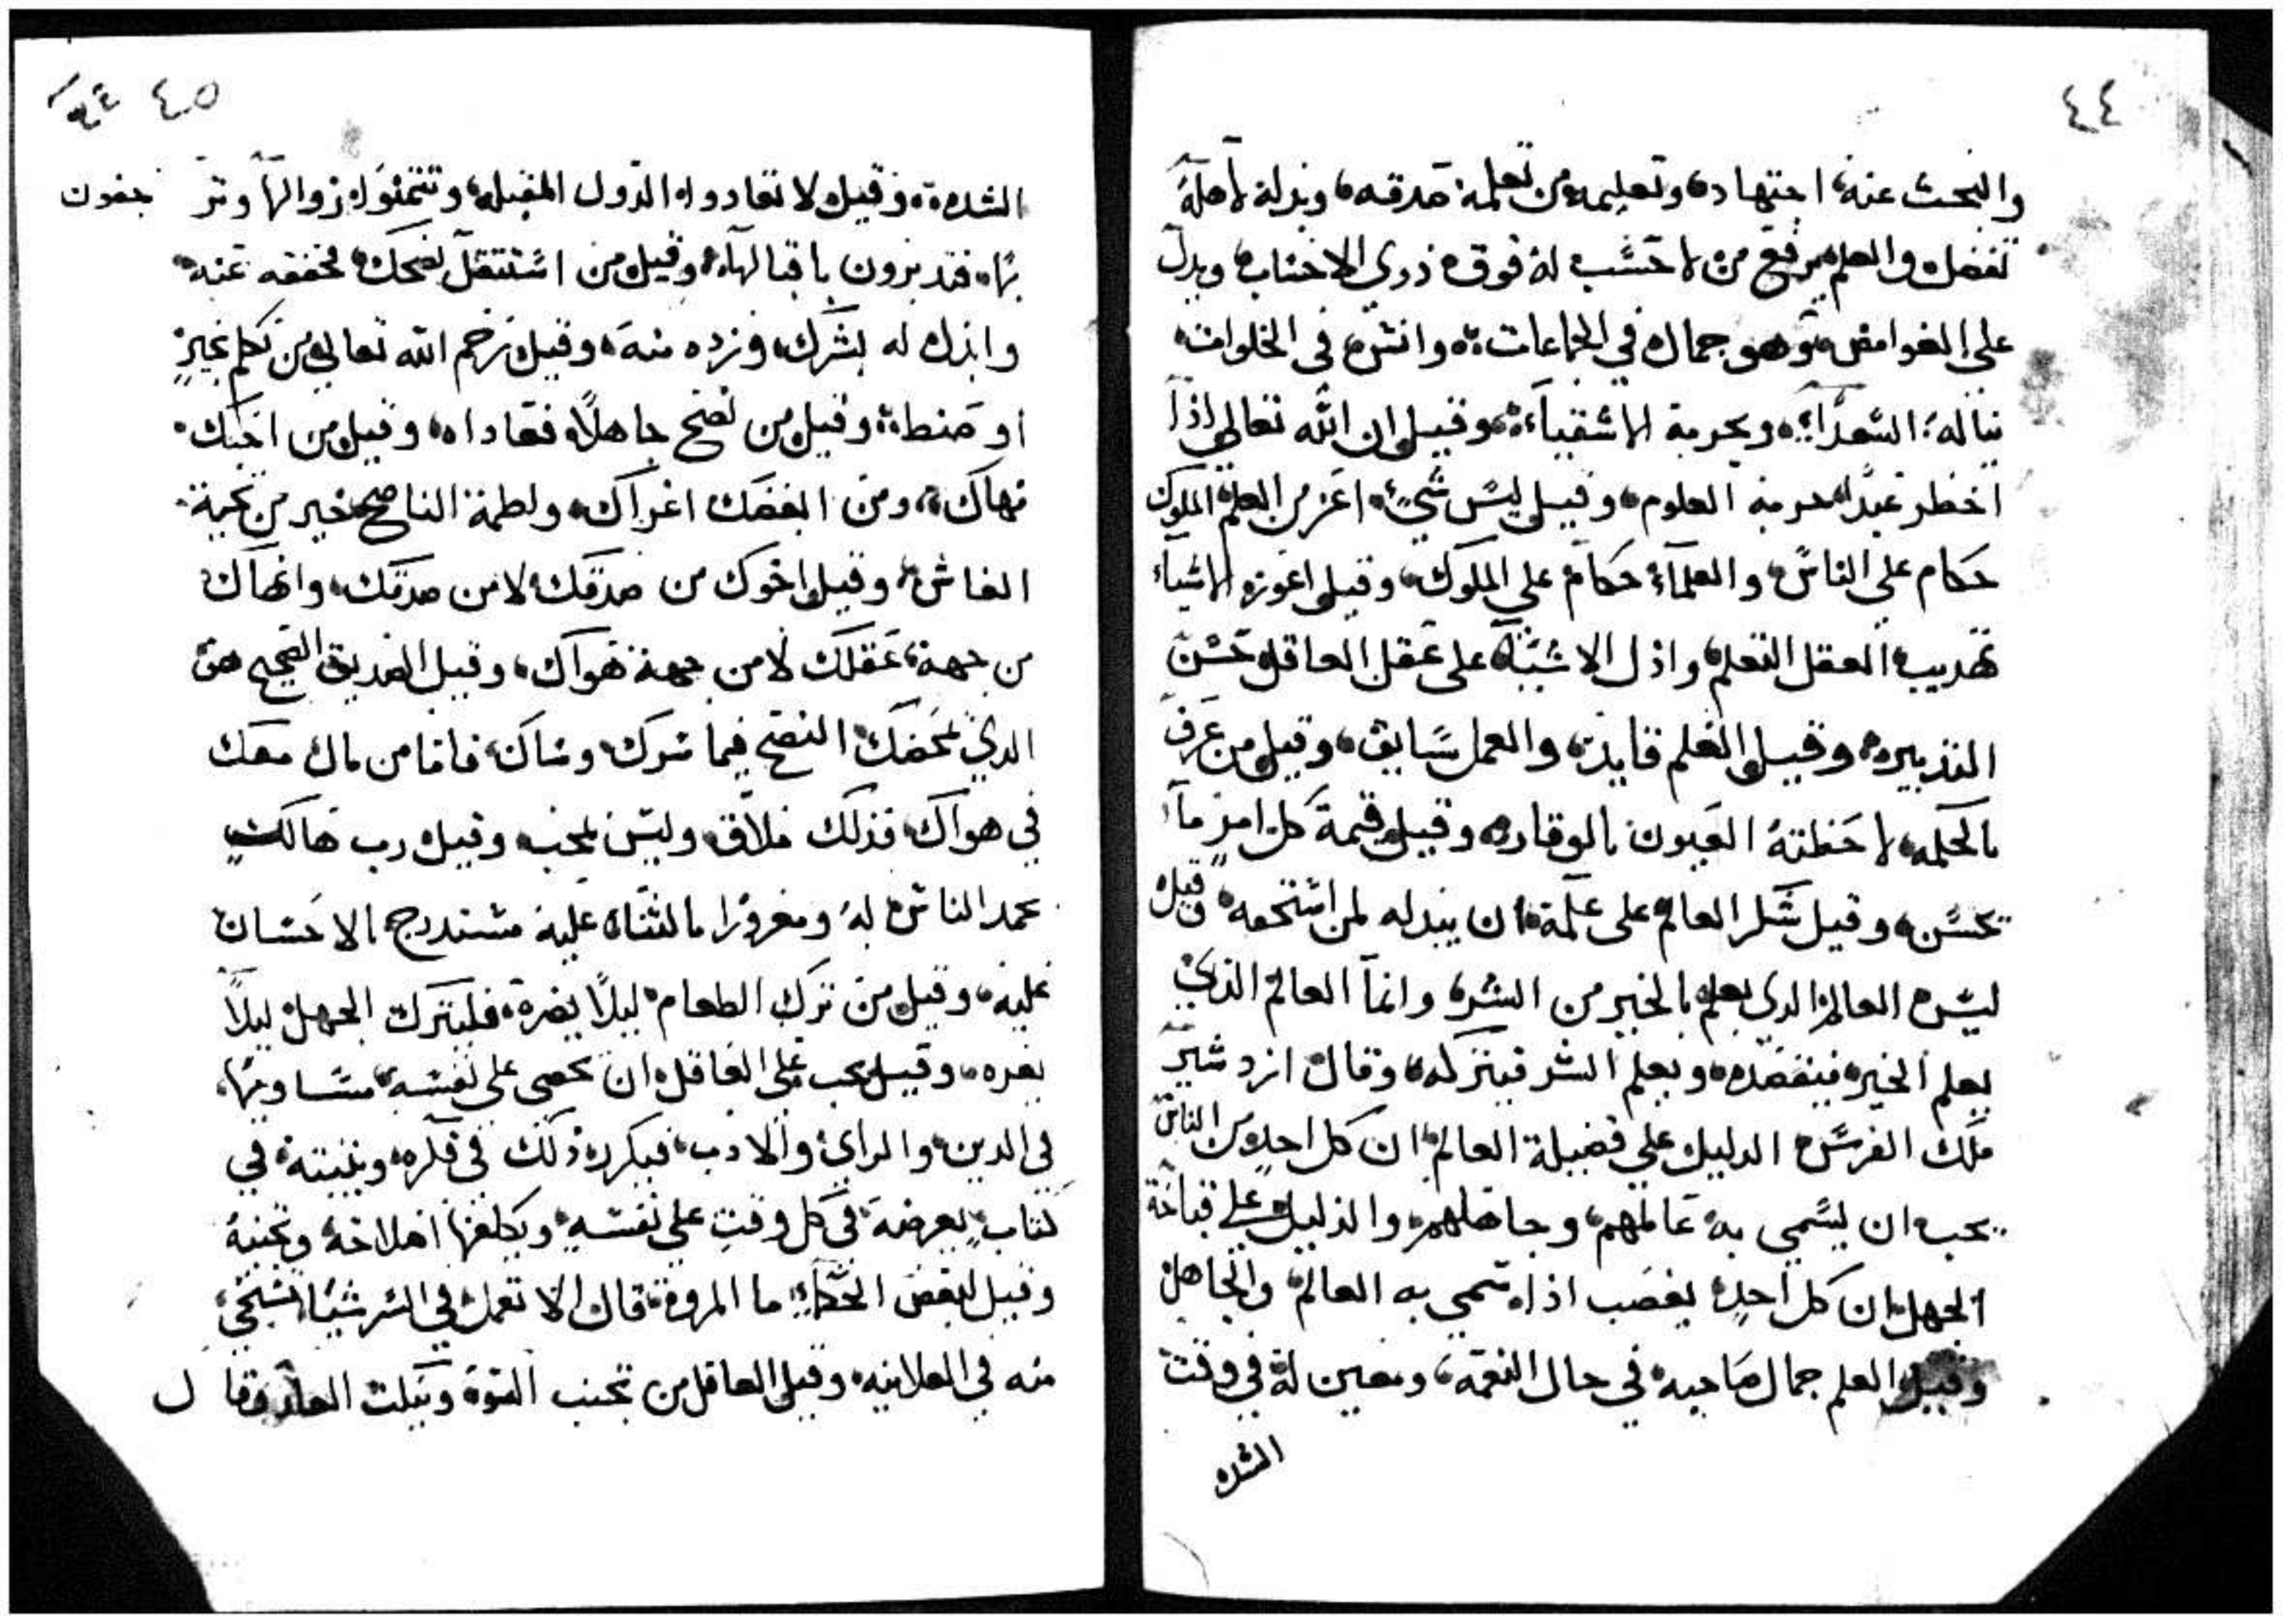 ٤٤
والبحث عنه، اجتهاد، وتعليمه من تعلمه صدقه، وبذله لاهله
تفضل، والعلم يرفع من لا حسب له فوق ذوي الاحساب، ويدل
على الغوامض، وهو جمال في الجماعات، وانس في الخلوات،
تناله السعداء، ويحرمه الاشقياء، وقيل ان الله تعالي اذا
احظر عبدا حرمه العلوم، وقيل ليس شيء اعز من العلم، الملوك
حكام علي الناس، والعلماء حكام علي الملوك، وقيل اعوزه الاشياء
تهديب العقل التعلم، واذل الاشياء على عقل العاقل حسن
التدبير، وقيل العلم قايد، والعمل سايق، وقيل من عرف
بالحكمه، لاحظته العيون بالوقار، وقيل قيمة كل امرٍ ما
يحسن، وقيل شكر العالم على علمه ان يبدله لمن استحقه، وقيل
ليس العالم الدي يعلم بالخير من الشر، وانما العالم الذي
يعلم الخير، فيقصده، ويعلم الشر فيتركه، وقال ازدشير
ملك الفرس الدليل علي فضيلة العالم، ان كل احدٍ من الناس
يحب ان يسمي به عالمهم، وجاهلهم، والدليل علي قباحة
الجهل، ان كل احدٍ يغضب اذا سمي به العالم، والجاهل
وقيل العلم جمال صاحبه في حال النعمة، ومعين له في وقت
الشده
٤٥
الشده، وقيل لا تعادوا الدول المقبله، وتتمنوا زوالها وتر جفون
بها، فتدبرون باقبالها، وقيل من استثقل نصحك، فخففه عنه،
وابذل له بشرك، وزده منه، وقيل رحم الله تعالي من تكلم بخيرٍ
او صنط، وقيل من نصح جاهلاً، فعاداه، وقيل من احبك
نهاك، ومن ابغضك اغراك، ولطمة الناصح، خير من تحية
الغاش، وقيل اخوك من صدقك، لا من صدقك، وانهاك
من جهة، عقلك لا من جهة هواك، وقيل الصديق الصحيح هو
الدي يمحضك، النصح فيما سرك، وساك، فاما من مال معك
في هواك، فذلك ملاق، وليس بمحب، وقيل رب هالك
بحمد الناس له، ومغرورا بالثناء عليه، مستدرج بالاحسان
عليه، وقيل من ترك الطعام ليلاً يضره، فليترك الجهل ليلاً
يضره، وقيل يجب علي العاقل، ان يحصي علي نفسه مساويها،
في الدين، والراي، والادب، فيكرر ذلك في فكره، ويثبته في
كتاب، يعرضه في كل وقت علي نفسه، ويكلفها
وقيل لبعض الحكماء ما المروة، قال الا تعمل في السر شيا تستحي
منه في العلانيه، وقيل العاقل من تجنب وقا ل